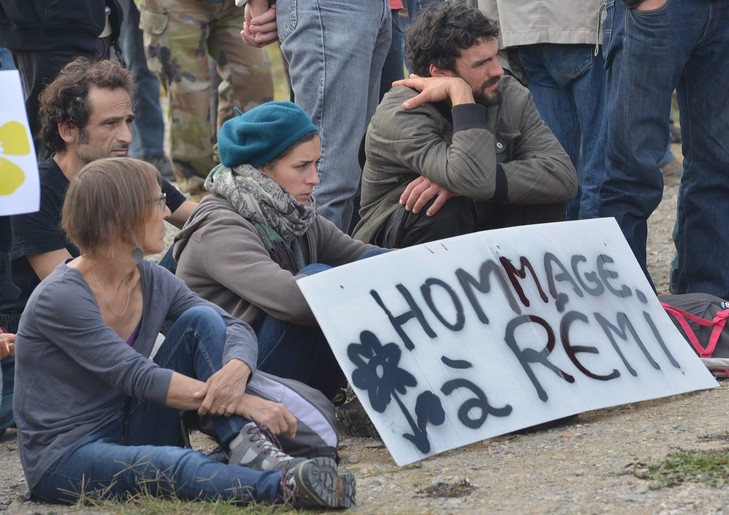 HOMMAGE
à RÉMI